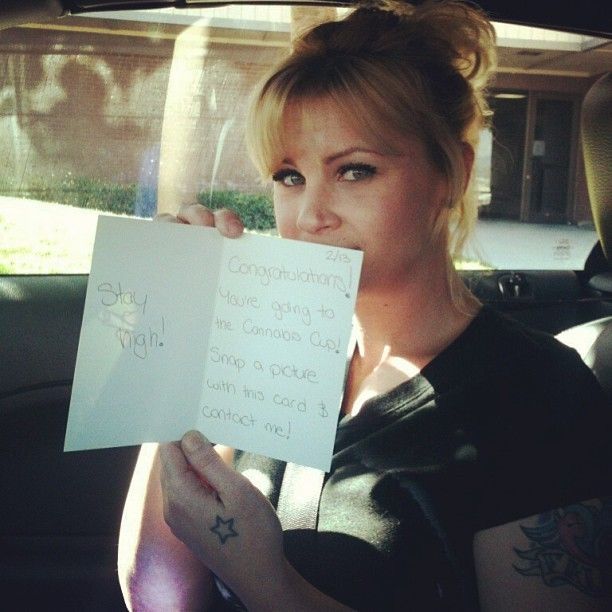 Stay
high!
2/13
Congratulations!
You're going to
the Cannabis Cup!
Snap a picture
with this card &
contact me!